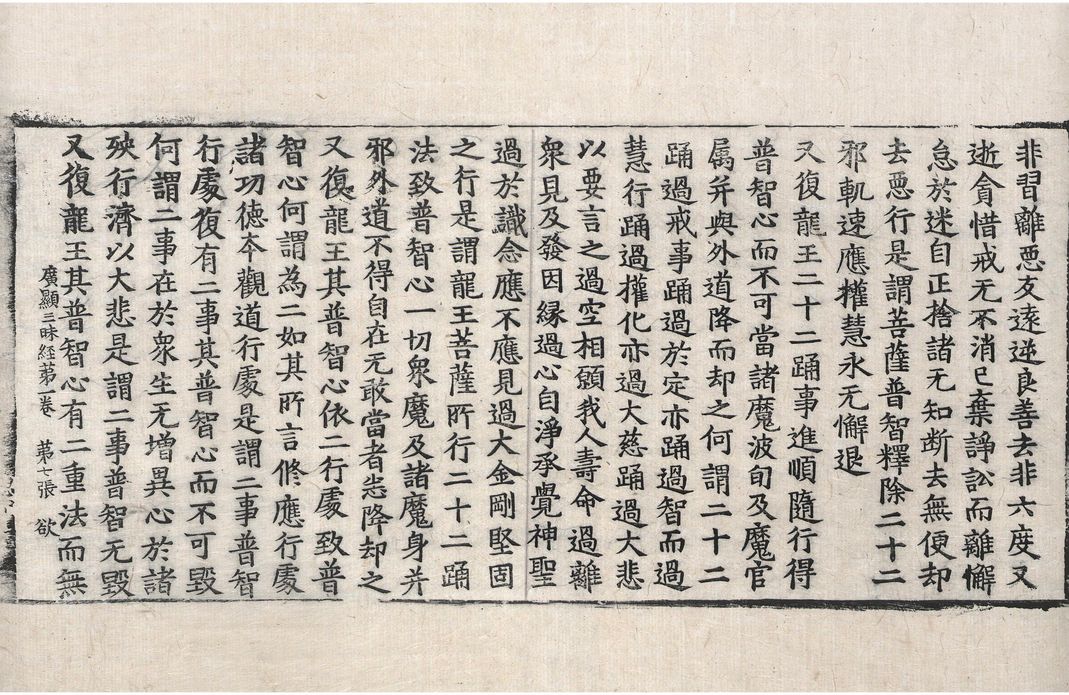 非習離惡友遠逆良善去非六度又
逝貪惜戒无不消已棄諍訟而離懈
怠於迷自正捨諸无知断去無便却
去惡行是謂菩薩普智釋除二十二
邪軌速應權慧永无懈退
又復龍王二十二踊事進順隨行得
普智心而不可當諸魔波旬及魔官
属并與外道降而却之何謂二十二
踊過戒事踊過於定亦踊過智而過
慧行踊過權化亦過大慈踊過大悲
以要言之過空相願我人壽命過離
衆見及發因縁過心自淨承覺神聖
過於識念應不應見過大金剛堅固
之行是謂龍王菩薩所行二十二踊
法致普智心一切衆魔及諸魔身并
邪外道不得自在无敢當者悉降却之
又復龍王其普智心依二行處致普
智心何謂為二如其所言修應行處
諸功徳夲觀道行處是謂二事普智
行處復有二事其普智心而不可毀
何謂二事在於衆生无增異心於諸
殃行濟以大悲是謂二事普智无毀
又復龍王其普智心有二重法而無
廣顯三昧経苐一卷 苐七張 欲